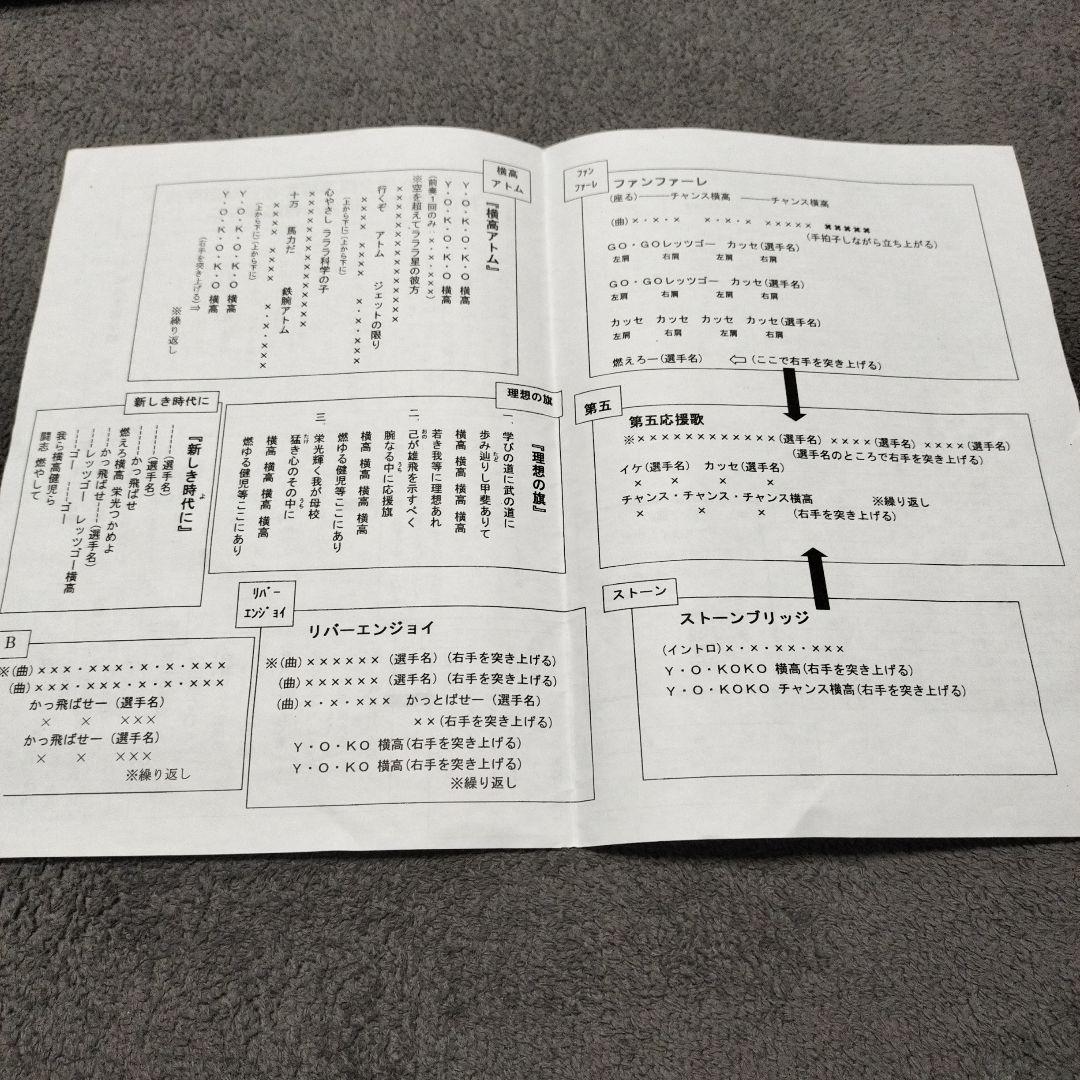 ファン
ファーレ
ファンファーレ
(座る)――チャンス横高 ――チャンス横高
(曲)×・×・× ×・×・× ××××× ×××××
(手拍子しながら立ち上がる)
GO・GOレッツゴー カッセ(選手名)
左肩 右肩 左肩 右肩
GO・GOレッツゴー カッセ(選手名)
左肩 右肩 左肩 右肩
カッセ カッセ カッセ カッセ(選手名)
左肩 右肩 左肩 右肩
燃えろー(選手名) ⇦(ここで右手を突き上げる)
第五
第五応援歌
※××××××××××××(選手名)××××(選手名)××××(選手名)
(選手名のところで右手を突き上げる)
イケ(選手名) カッセ(選手名)
× × × ×
チャンス・チャンス・チャンス横高 ※繰り返し
× × × (右手を突き上げる)
ストーン
ストーンブリッジ
(イントロ)×・×・××・×××
Y・O・KOKO 横高(右手を突き上げる)
Y・O・KOKO チャンス横高(右手を突き上げる)
横高
アトム
『横高アトム』
Y・O・K・O・K・O 横高
Y・O・K・O・K・O 横高
(前奏1回のみ・×・×・×××)
※空を超えてラララ星の彼方
×××××××××××××
行くぞ アトム ジェットの限り
×××× ×××× ×・×・×××
(上から下に)(上から下に)
心やさし ラララ科学の子
×××××××××××××
十万 馬力だ 鉄腕アトム
×××× ×××× ×・×・×××
(上から下に)(上から下に)
Y・O・K・O・K・O 横高
Y・O・K・O・K・O 横高
(右手を突き上げる)⇒
※繰り返し
理想の旗
『理想の旗』
一、学びの道に武の道に
歩み辿り(たど)し甲斐ありて
横高 横高 横高 横高
若き我等に理想あれ
二、己(おの)が雄飛を示すべく
腕なる中(うち)に応援旗
横高 横高 横高 横高
燃ゆる健児等ここにあり
三、栄光輝く我が母校
猛(たけ)き心のその中(うち)に
横高 横高 横高 横高
燃ゆる健児等ここにあり
新しき時代に
『新しき時代(よ)に』
-----(選手名)
-----(選手名)
-----かっ飛ばせ
燃えろ横高 栄光つかめよ
----かっ飛ばせ----(選手名)
----レッツゴー レッツゴー横高
----ゴー ----ゴー
我ら横高健児ら
闘志 燃やして
ﾘﾊﾞｰ
ｴﾝｼﾞｮｲ
リバーエンジョイ
※(曲)××××××(選手名)(右手を突き上げる)
(曲)××××××(選手名)(右手を突き上げる)
(曲)×・×・××× かっとばせー(選手名)
××(右手を突き上げる)
Y・O・KO 横高(右手を突き上げる)
Y・O・KO 横高(右手を突き上げる)
※繰り返し
B
※(曲)×××・×××・×・×・×××
(曲)×××・×××・×・×・×××
かっ飛ばせー(選手名)
× × ×××
かっ飛ばせー(選手名)
× × ×××
※繰り返し